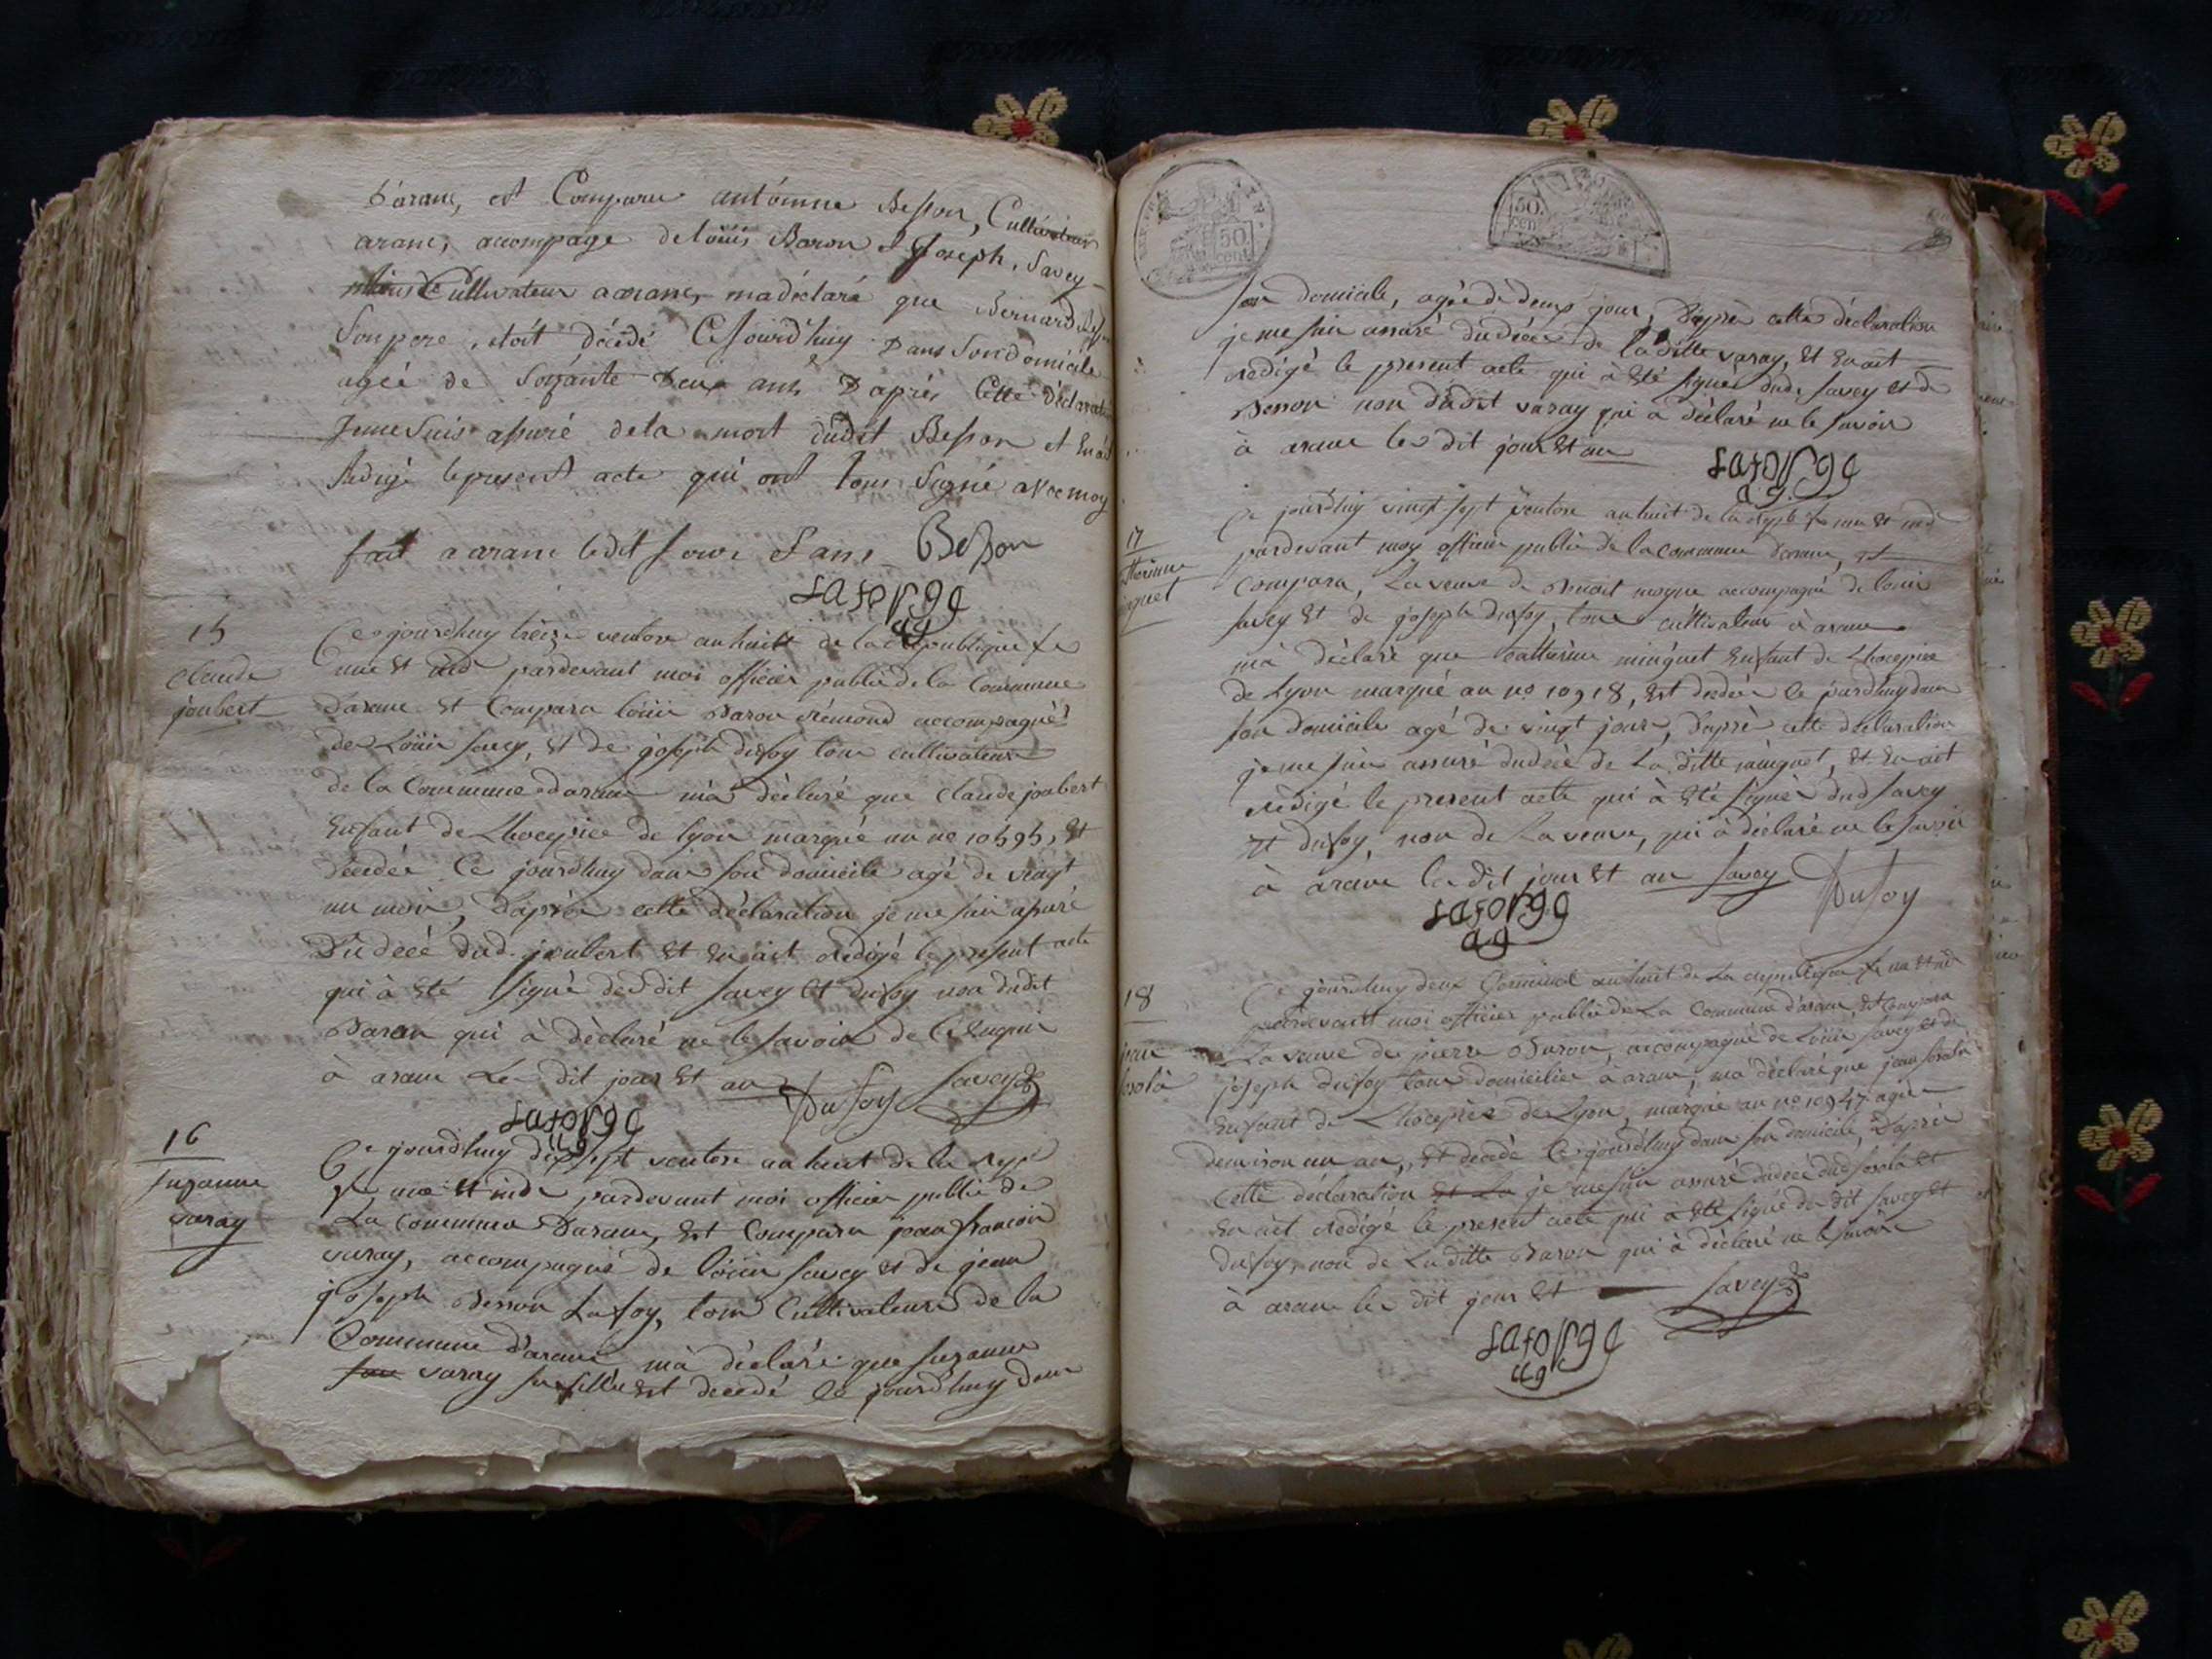 D'aranc, est Comparu antoinne Besson, Cultivateur
aranc, accompagé delouis Baron & Joseph Savey
Cultivateur a aranc, madéclaré que Bernard Besson
Sonpere, étoit décédé Cejourd'huy Dans Son domicile
agéé de Soixante Deux ans, D'aprés Cette Déclaration
Jemesuis assuré dela mort dudit Besson et En ai
Redigé lepresent acte qui ont tous Signé avecmoy
fait a aranc ledit jour & ans Besson
Laforge
ag
15
claude
joubert
Ce jourdhuy treize ventose an huitt de la république fse
une et ind pardevant moi officier public de la Commune
daranc Et Comparu louii Baron rémond accompagné
de Louii savey, Et de joseph dufoy tous cultivateur
de la Commune daranc m'a déclaré que claude joubert
Enfant de Lhocepice de lyon marqué au no 10595, Et
décédée Ce jourdhuy dans son domicile agé de vingt
un moix, d'aprèr cette déclaration je me suis assuré
Du decé dud. joubert Et En ait redigé le present acte
qui à Eté signé dud dit savey Et dufoy non dudit
Baron qui à déclaré ne le savoir de ce Enquir
à aranc Le dit jour Et an Dufoy Savey
Laforge
ag
16
suzanne
varay
Ce jourdhuy dix sept ventose an huit de la rep
fse une Et indi pardevant moi officier public de
La commune Daranc, Est Comparu jean francoii
varay, accompagné de loüii savey et de jean
joseph Besson Lafoy, tous Cultivateurs de la
Commune d'aranc, m'a déclaré que suzanne
varay sa fille Est decedé ce jourd'huy dans
50. cent
50. cent
son domicile, agée de deux jour, Daprèr cette déclaration
je me suis assuré dudécé de la ditte varay, Et En ait
redigé le present acte qui à Eté signé dud. savey et de
Besson non dudit varay qui a déclaré ne le savoir
à aranc le dit jour Et an
Laforge
ag.
17
catherinne
minguet
Ce jourdhuy vingt-sept ventose an huit de la repb fse une Et ind
pardevant moy officier public de la commune daranc, est
Compara, La veuve de Benoit moyne accompagné de louii
savey Et de joseph dufoy, tous cultivateur à aranc
m'a déclaré que Catherine minguet Enfant de Lhocepice
de Lyon marqué au no 10918, Est dedée ce jourdhuy dans
son domicile agé de vingt jour, d'aprè cette déclaration
je me suis assuré dudécé de La ditte minguet, Et En ait
rédigé le present acte qui à Eté signé dud savey
Et dufoy, non de La veuve, qui à déclaré ne le savoir
à aranc le dit jour Et an savey Dufoy
Laforge
ag
18
jean
sorala
Ce jourdhuy deux Germinal an huit de La republique fse une Et ind
pardevant moi officier public de La Commune d'aranc, Est Compara
La veuve de pierre Baron, accompagné de Louii savey et de
joseph dufoy tous domicilier à aranc, m'a déclaré que jean sorala
Enfant de Lhocepice de Lyon, marqué au no 10947. agé
denviron un an, Et decedé Ce jourd'huy dans son domicile, D'aprèr
Cette déclaration Et La je me suis assuré dudecé dud sorala et
En ait redigé le present acte qui à Eté signé du dit savey Et
dufoy, non de La ditte Baron qui à déclaré ne le savoir
à aranc le dit jour Et Savey
Laforge
ag